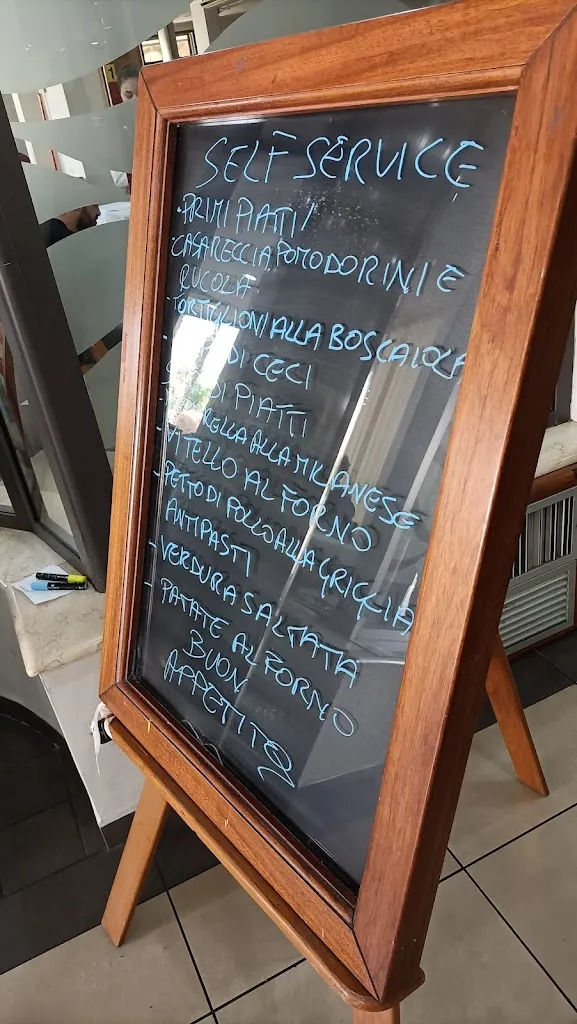 SELF SERVICE
• PRIMI PIATTI/
CASARECCIA POMODORINI E
RUCOLA
• TORTIGLIONI ALLA BOSCAIOLA
DI CECI
DI PIATTI
ALLA MILANESE
- VITELLO AL FORNO
- PETTO DI POLLO ALLA GRIGLIA
ANTIPASTI
- VERDURA SALTATA
- PATATE AL FORNO
BUON
APPETITO